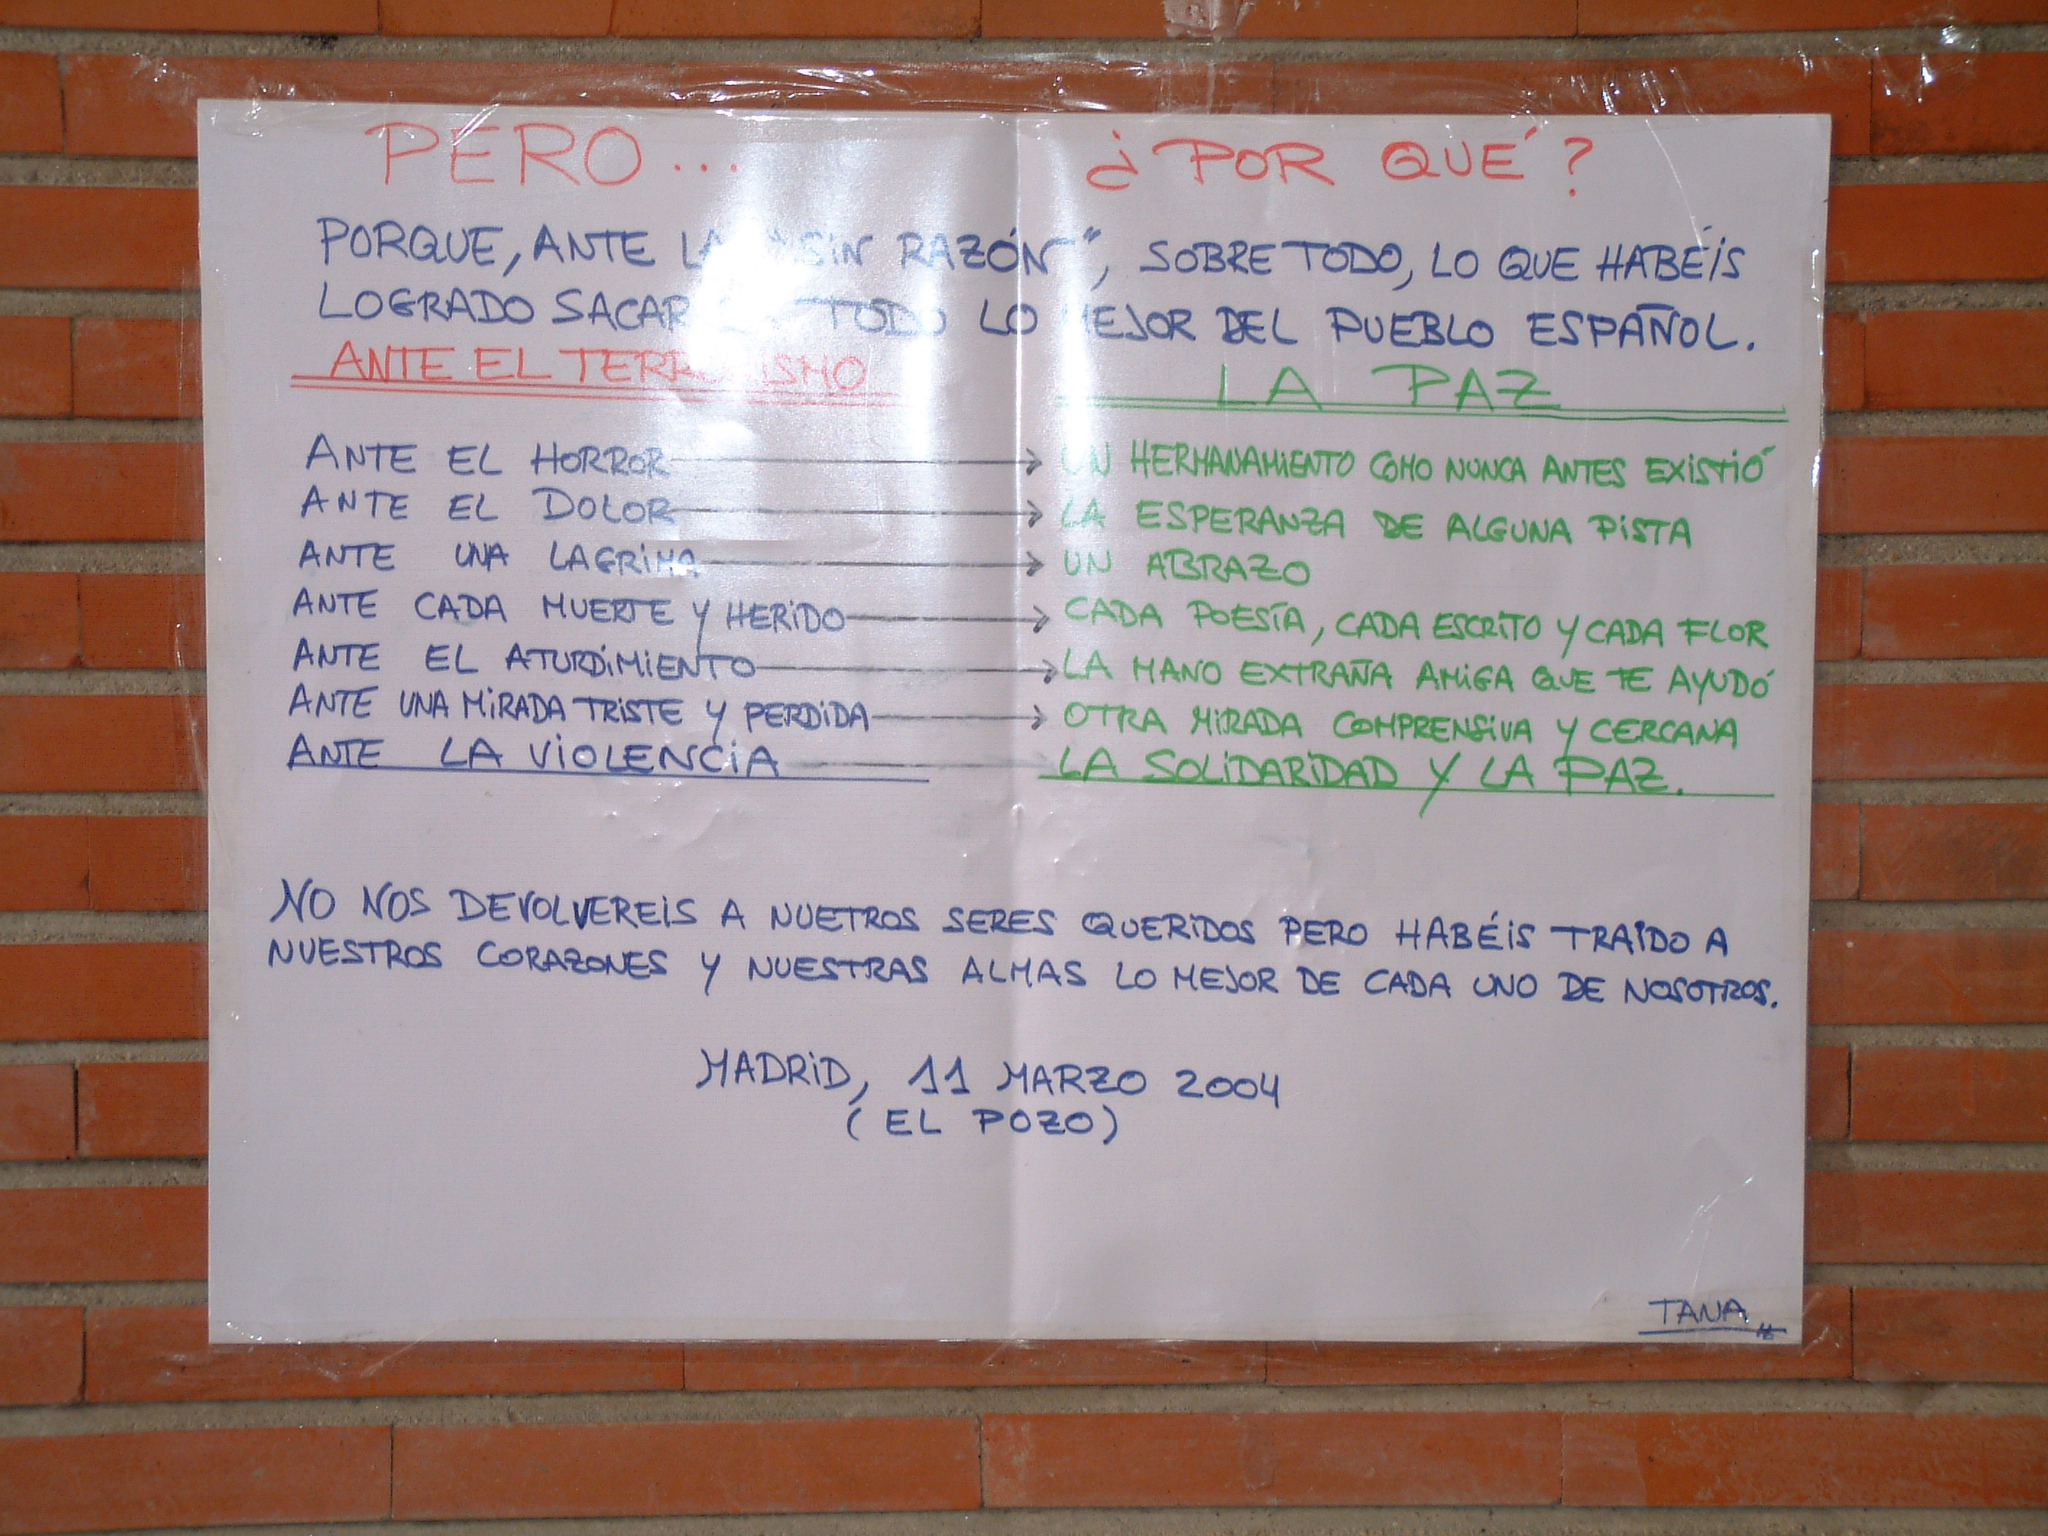 PERO... ¿POR QUÉ?
PORQUE, ANTE LA "SIN RAZÓN", SOBRE TODO, LO QUE HABÉIS
LOGRADO SACAR TODO LO MEJOR DEL PUEBLO ESPAÑOL.
ANTE EL TERRORISMO LA PAZ
ANTE EL HORROR → UN HERMANAMIENTO COMO NUNCA ANTES EXISTIÓ
ANTE EL DOLOR → LA ESPERANZA DE ALGUNA PISTA
ANTE UNA LAGRIMA → UN ABRAZO
ANTE CADA MUERTE Y HERIDO → CADA POESÍA, CADA ESCRITO Y CADA FLOR
ANTE EL ATURDIMIENTO → LA MANO EXTRAÑA AMIGA QUE TE AYUDÓ
ANTE UNA MIRADA TRISTE Y PERDIDA → OTRA MIRADA COMPRENSIVA Y CERCANA
ANTE LA VIOLENCIA LA SOLIDARIDAD Y LA PAZ.
NO NOS DEVOLVEREIS A NUETROS SERES QUERIDOS PERO HABÉIS TRAÍDO A
NUESTROS CORAZONES Y NUESTRAS ALMAS LO MEJOR DE CADA UNO DE NOSOTROS.
MADRID, 11 MARZO 2004
(EL POZO)
TANA